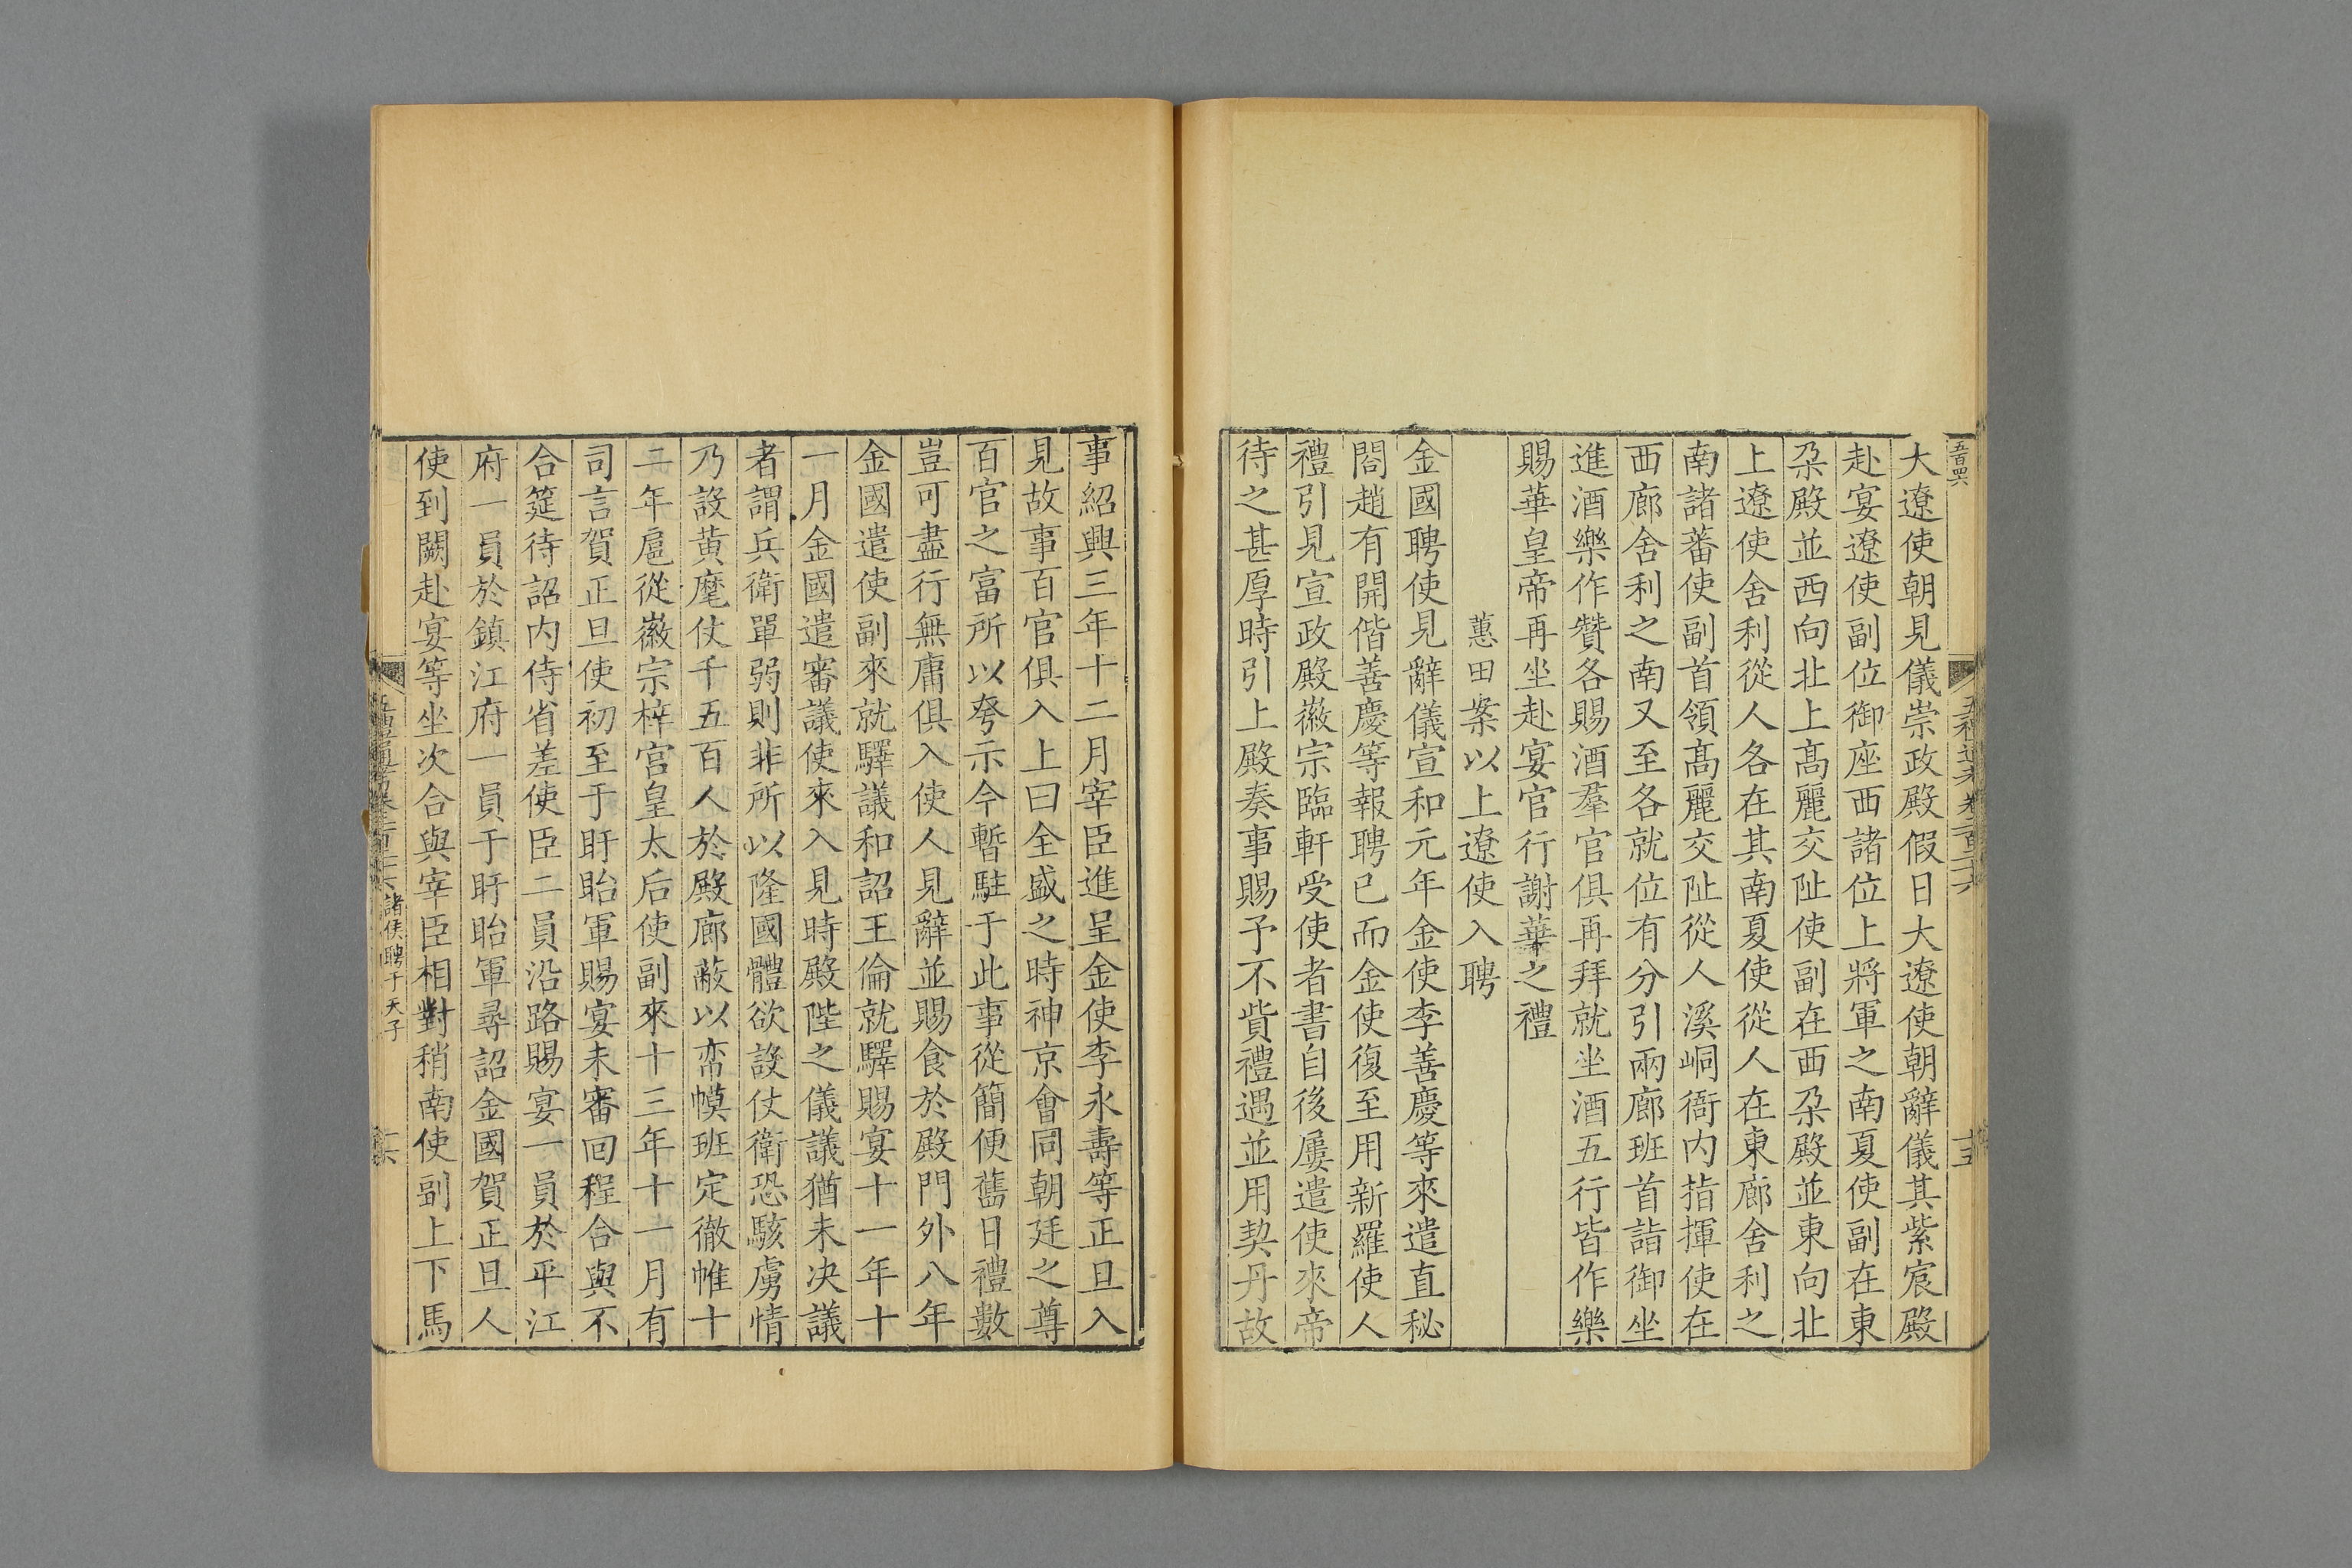 大遼使朝見儀崇政殿假日大遼使朝辭儀其紫宸殿
赴宴遼使副位御座西諸位上將軍之南夏使副在東
朶殿並西向北上髙麗交阯使副在西朶殿並東向北
上遼使舍利從人各在其南夏使從人在東廊舍利之
南諸蕃使副首領髙麗交阯從人溪峒衙内指揮使在
西廊舍利之南又至各就位有分引兩廊班首詣御坐
進酒樂作贊各賜酒羣官俱再拜就坐酒五行皆作樂
賜華皇帝再坐赴宴官行謝華之禮
蕙田案以上遼使入聘
金國聘使見辭儀宣和元年金使李善慶等來遣直秘
閤趙有開偕善慶等報聘已而金使復至用新羅使人
禮引見宣政殿徽宗臨軒受使者書自後屢遣使來帝
待之甚厚時引上殿奏事賜予不貲禮遇並用契丹故
事紹興三年十二月宰臣進呈金使李永壽等正旦入
見故事百官俱入上曰全盛之時神京會同朝廷之尊
百官之富所以夸示今暫駐于此事從簡便舊日禮數
豈可盡行無庸俱入使人見辭並賜食於殿門外八年
金國遣使副來就驛議和詔王倫就驛賜宴十一年十
一月金國遣審議使來入見時殿陛之儀議猶未决議
者謂兵衛單弱則非所以隆國體欲設仗衛恐駭虜情
乃設黄麾仗千五百人於殿廊蔽以帟幙班定徹帷十
二年扈從徽宗梓宫皇太后使副來十三年十一月有
司言賀正旦使初至于盱眙軍賜宴未審回程合與不
合筵待詔内侍省差使臣二員沿路賜宴一員於平江
府一員於鎮江府一員于盱眙軍尋詔金國賀正旦人
使到闕赴宴等坐次合與宰臣相對稍南使副上下馬
諸侯聘于天子